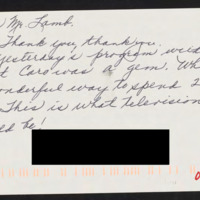 Mr. Lamb.
Thank you, thank you.
Yesterday's program
t Caro was a gem. Wh
nderful way to spend 2
This is what television
ld be!